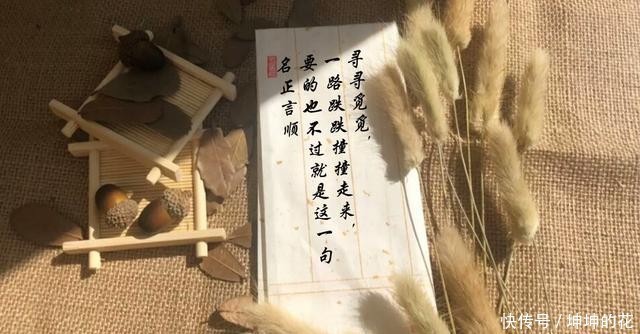 寻寻觅觅，
一路跌跌撞撞走来，
要的也不过就是这一句
名正言顺
快传号／坤坤的花